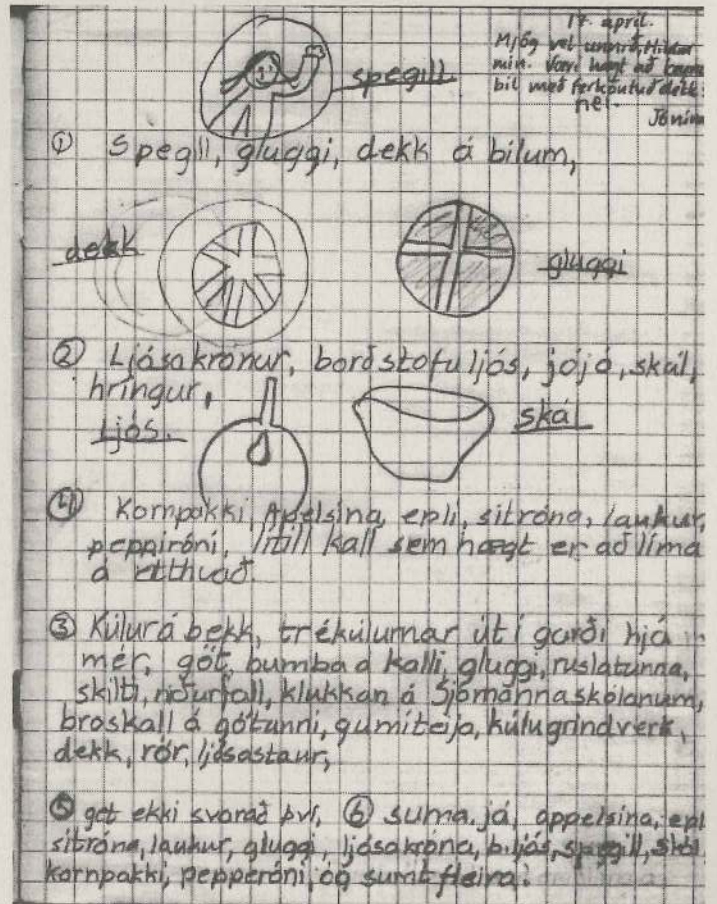 17. apríl.
Mjög vel unnið, Hildur
mín. Væri hægt að
bíl með ferköntuð dekk?
nei.
Jónína
spegill
① Spegill, gluggi, dekk á bílum,
dekk
gluggi
② Ljósakrónur, borðstofuljós, jójó, skál,
hringur,
Ljós.
skál
④ Kornpakki, Apelsína, epli, sítróna, laukur,
peppiróní, lítill kall sem hægt er að líma
á etthvað.
③ Kúlur á bekk, trékúlurnar út í garði hjá
mér, göt, bumba á kalli, gluggi, ruslatunna,
skilti, niðurfall, klukkan á Sjómannaskólanum,
broskall á götunni, gumiteija, kúlugrindverk,
dekk, rör, ljósastaur,
⑤ get ekki svarað því, ⑥ suma já, appelsína, epl
sítróna, laukur, gluggi, ljósakróna, bíljós, spegill, skál
kornpakki, pepperóní, og sumt fleira.